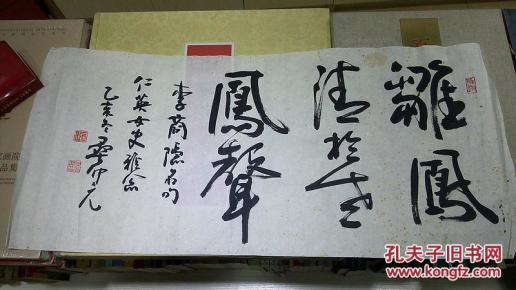 雛鳳
清於老
鳳聲
李商隱名句
仁英女史雅念
乙亥冬
孔夫子旧书网
www.kongfz.com